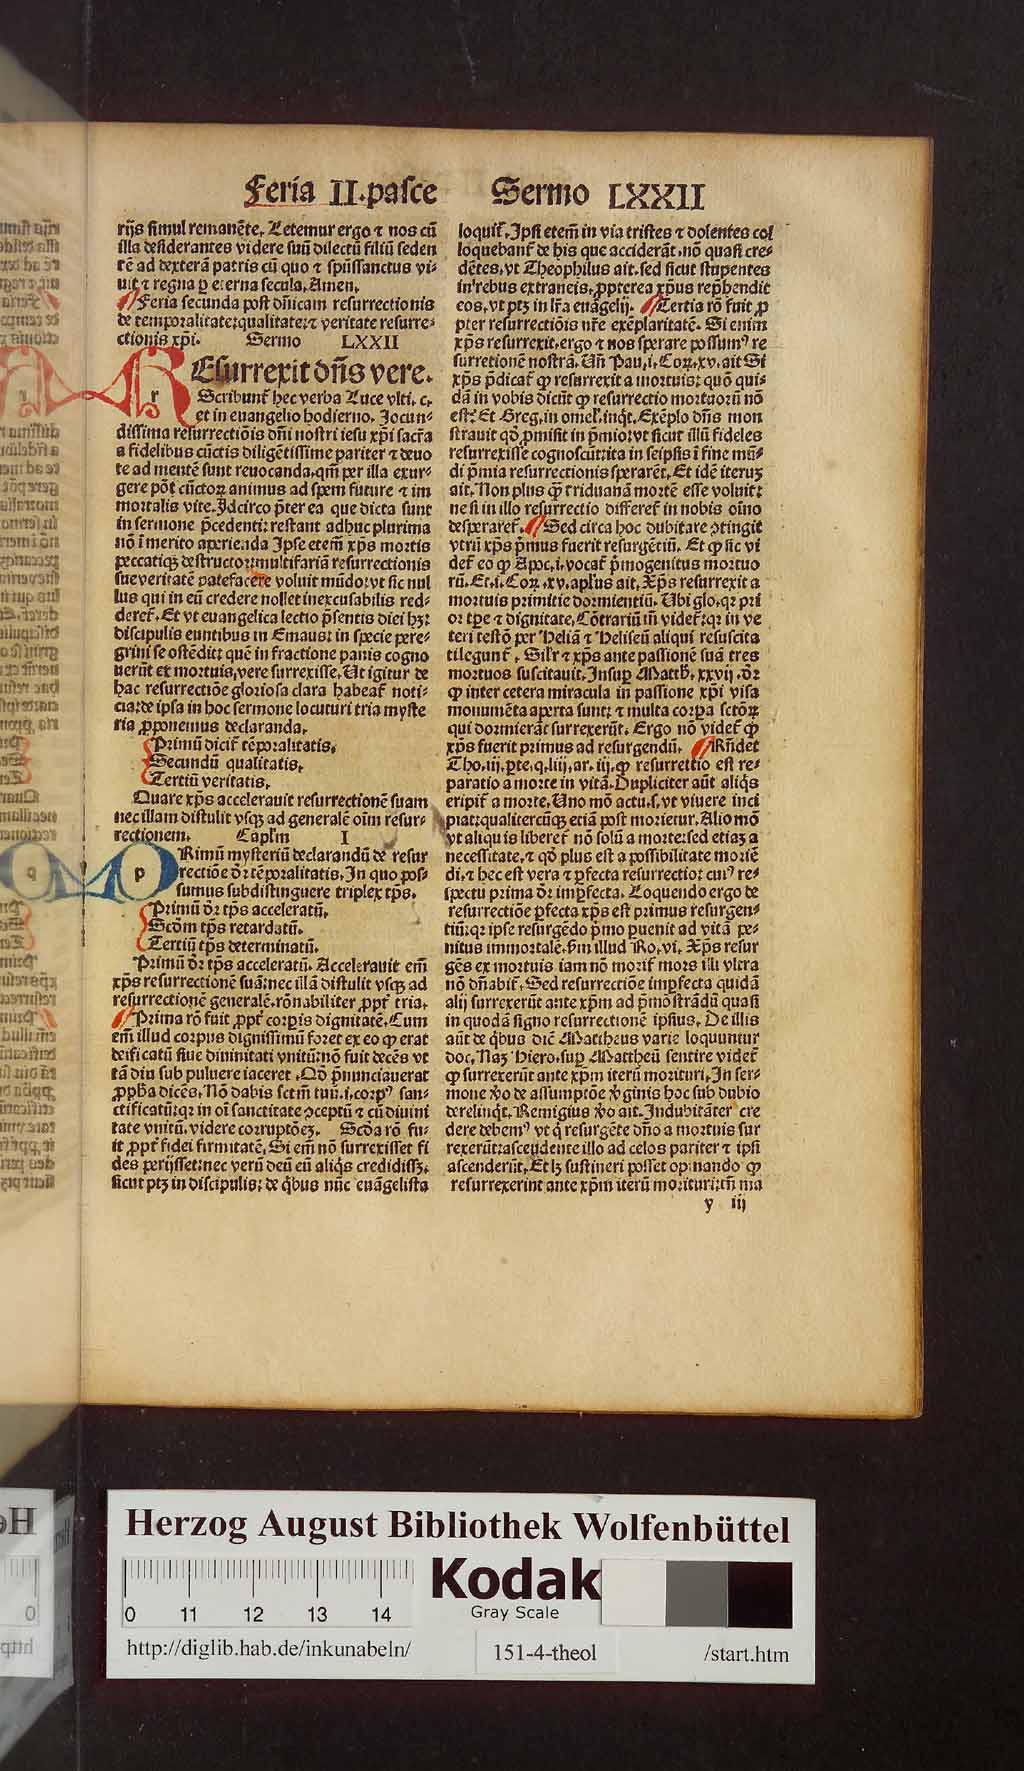 Feria II. pasce Sermo LXXII
rijs simul remanēte. Letemur ergo ⁊ nos cū
illa desiderantes videre suū dilectū filiū seden
tē ad dexterā patris cū quo ⁊ spūssanctus vi⸗
uit ⁊ regna p eterna secula. Amen.
Feria secunda post dn̄icam resurrectionis
de temporalitate: qualitate: ⁊ veritate resurre⸗
ctionis xp̄i. Sermo LXXII
REsurrexit dn̄s vere.
Scribunt̄ hec verba Luce vlti. c.
et in euangelio hodierno. Jocun⸗
dissima resurrectiōis dn̄i nostri iesu xp̄i sacr̄a
a fidelibus cūctis diligētissime pariter ⁊ deuo
te ad mentē sunt reuocanda. qm̄ per illa exur⸗
gere pōt cūctoꝝ animus ad spem future ⁊ im
mortalis vite. Jdcirco p̄ter ea que dicta sunt
in sermone p̄cedenti: restant adhuc plurima
nō īmerito aperienda Jpse etem̄ xp̄s mortis
peccatiqꝫ destructor: multifariā resurrectionis
sue veritatē patefacere voluit mūdo: vt sic nul
lus qui in eū credere nollet inexcusabilis red⸗
deret̄. Et vt euangelica lectio p̄sentis diei hꝫ:
discipulis euntibus in Emaus: in specie pere⸗
grini se ostēdit: quē in fractione panis cogno
uerūt ex mortuis, vere surrexisse. Ut igitur de
hac resurrectiōe gloriosa clara habeat̄ noti⸗
cia: de ipsa in hoc sermone locuturi tria myste
ria ꝓponemus declaranda.
Primū dicit̄ tēporalitatis.
Secundū qualitatis.
Tertiū veritatis.
Quare xp̄s accelerauit resurrectionē suam
nec illam distulit vsqꝫ ad generalē oīm resur⸗
rectionem. Capl̄m I
PRimū mysteriū declarandū de resur
rectiōe dr̄ tēporalitatis. In quo pos⸗
sumus subdistinguere triplex tp̄s.
Primū dr̄ tp̄s acceleratū.
Scd̄m tp̄s retardatū.
Tertiū tp̄s determinatū.
Primū dr̄ tp̄s acceleratū. Accelerauit em̄
xp̄s resurrectionē suā: nec illā distulit vsqꝫ ad
resurrectionē generalē. rōnabiliter ꝓpt̄ tria.
Prima rō fuit ꝓpt̄ corpis dignitatē. Cum
em̄ illud corpus dignissimū foret ex eo ꝙ erat
deificatū siue diuinitati vnitū: nō fuit decēs vt
tā diu sub puluere iaceret. Qd̄ p̄nunciauerat
ꝓpha dicēs. Nō dabis sctm̄ tuū. i. corpꝰ san⸗
ctificatū: qꝛ in oī sanctitate ꝯceptū ⁊ cū diuini
tate vnitū. videre corruptōeꝫ. Scd̄a rō fu⸗
it ꝓpt̄ fidei firmitatē. Si em̄ nō surrexisset fi
des perijsset: nec verū deū eū aliq̄s credidissꝫ.
sicut ptꝫ in discipulis: de q̄bus nūc euāgelista
loquit̄. Jpsi etem̄ in via tristes ⁊ dolentes col
loquebant̄ de his que acciderāt. nō quasi cre⸗
dētes. vt Theophilus ait. sed sicut stupentes
in rebus extraneis. ꝓpterea xp̄us rep̄hendit
eos. vt ptꝫ in lr̄a euāgelij. Tertia rō fuit ꝓ
pter resurrectiōis nr̄e exēplaritatē. Si enim
xp̄s resurrexit. ergo ⁊ nos sperare possumꝰ re
surretionē nostrā. Un̄ Pau. i. Coꝝ. xv. ait Si
xp̄s p̄dicat̄ ꝙ resurrexit a mortuis: quō qui⸗
dā in vobis dicūt ꝙ resurrectio mortuorū nō
est: Et Greg. in omel̄. inq̄t. Exēplo dn̄s mon
strauit qd̄ ꝓmisit in p̄mio: vt sicut illū fideles
resurrexisse cognoscūt: ita in seipsis ī fine mū⸗
di p̄mia resurrectionis sperarēt. Et idē iteruꝫ
ait. Non plus ꝙ̄ triduanā mortē esse voluit:
ne si in illo resurrectio differet̄ in nobis oīno
desperaret̄. Sed circa hoc dubitare ꝯtingit
vtrū xp̄s p̄mus fuerit resurgētiū. Et ꝙ sic vi
det̄ eo ꝙ Apoc. i. vocat̄ p̄mogenitus mortuo
rū. Et. i. Coꝝ. xv. apl̄us ait. Xp̄s resurrexit a
mortuis primitie dormientiū. Ubi glo. qꝛ pri
or tp̄e ⁊ dignitate. Cōtrariū tn̄ videt̄: qꝛ in ve
teri testō per Heliā ⁊ Heliseū aliqui resuscita
ti legunt̄. Silr̄ ⁊ xp̄s ante passionē suā tres
mortuos suscitauit. Insup Matth. xxvij. dr̄
ꝙ inter cetera miracula in passione xp̄i visa
monumēta aperta sunt: ⁊ multa corpa sctōꝝ
qui dormierāt surrexerūt. Ergo nō videt̄ ꝙ
xp̄s fuerit primus ad resurgendū. Rn̄det
Tho. iij. pte. q. liij. ar. iij. ꝙ resurrettio est re⸗
paratio a morte in vitā. Dupliciter aūt aliq̄s
eripit̄ a morte. Uno mō actu. s. vt viuere inci
piat: qualitercūqꝫ etiā post morietur. Alio mō
vt aliquis liberet̄ nō solū a morte: sed etiaꝫ a
necessitate. ⁊ qd̄ plus est a possibilitate moriē
di. ⁊ hec est vera ⁊ pfecta resurrectio: cuiꝰ re⸗
spectu prima dr̄ impfecta. Loquendo ergo de
resurrectiōe pfecta xp̄s est primus resurgen⸗
tiū: qꝛ ipse resurgēdo p̄mo puenit ad vitā pe⸗
nitus immortalē. s̄m illud Ro. vi. Xp̄s resur
gēs ex mortuis iam nō morit̄ mors illi vltra
nō dn̄abit̄. Sed resurrectiōe impfecta quidā
alij surrexerūt ante xp̄m ad p̄mōstrādū quasi
in quodā signo resurrectionē ipsius. De illis
aūt de q̄bus dic̄ Mattheus varie loquuntur
doc. Naꝫ Hiero. sup Mattheū sentire videt̄
ꝙ surrexerūt ante xp̄m iterū morituri. In ser⸗
mone v̄o de assumptōe v̄ginis hoc sub dubio
derelinq̄t. Remigius v̄o ait. Indubitāter cre
dere debemꝰ vt q̄ resurgēte dn̄o a mortuis sur
rexerūt: ascendente illo ad celos pariter ⁊ ipsi
ascenderūt. Et lꝫ sustineri posset opinando ꝙ
resurrexerint ante xp̄m iterū morituri: tn̄ ma
y iij
Herzog August Bibliothek Wolfenbüttel
Kodak
Gray Scale
0 11 12 13 14
http://diglib.hab.de/inkunabeln/ 151-4-theol /start.htm